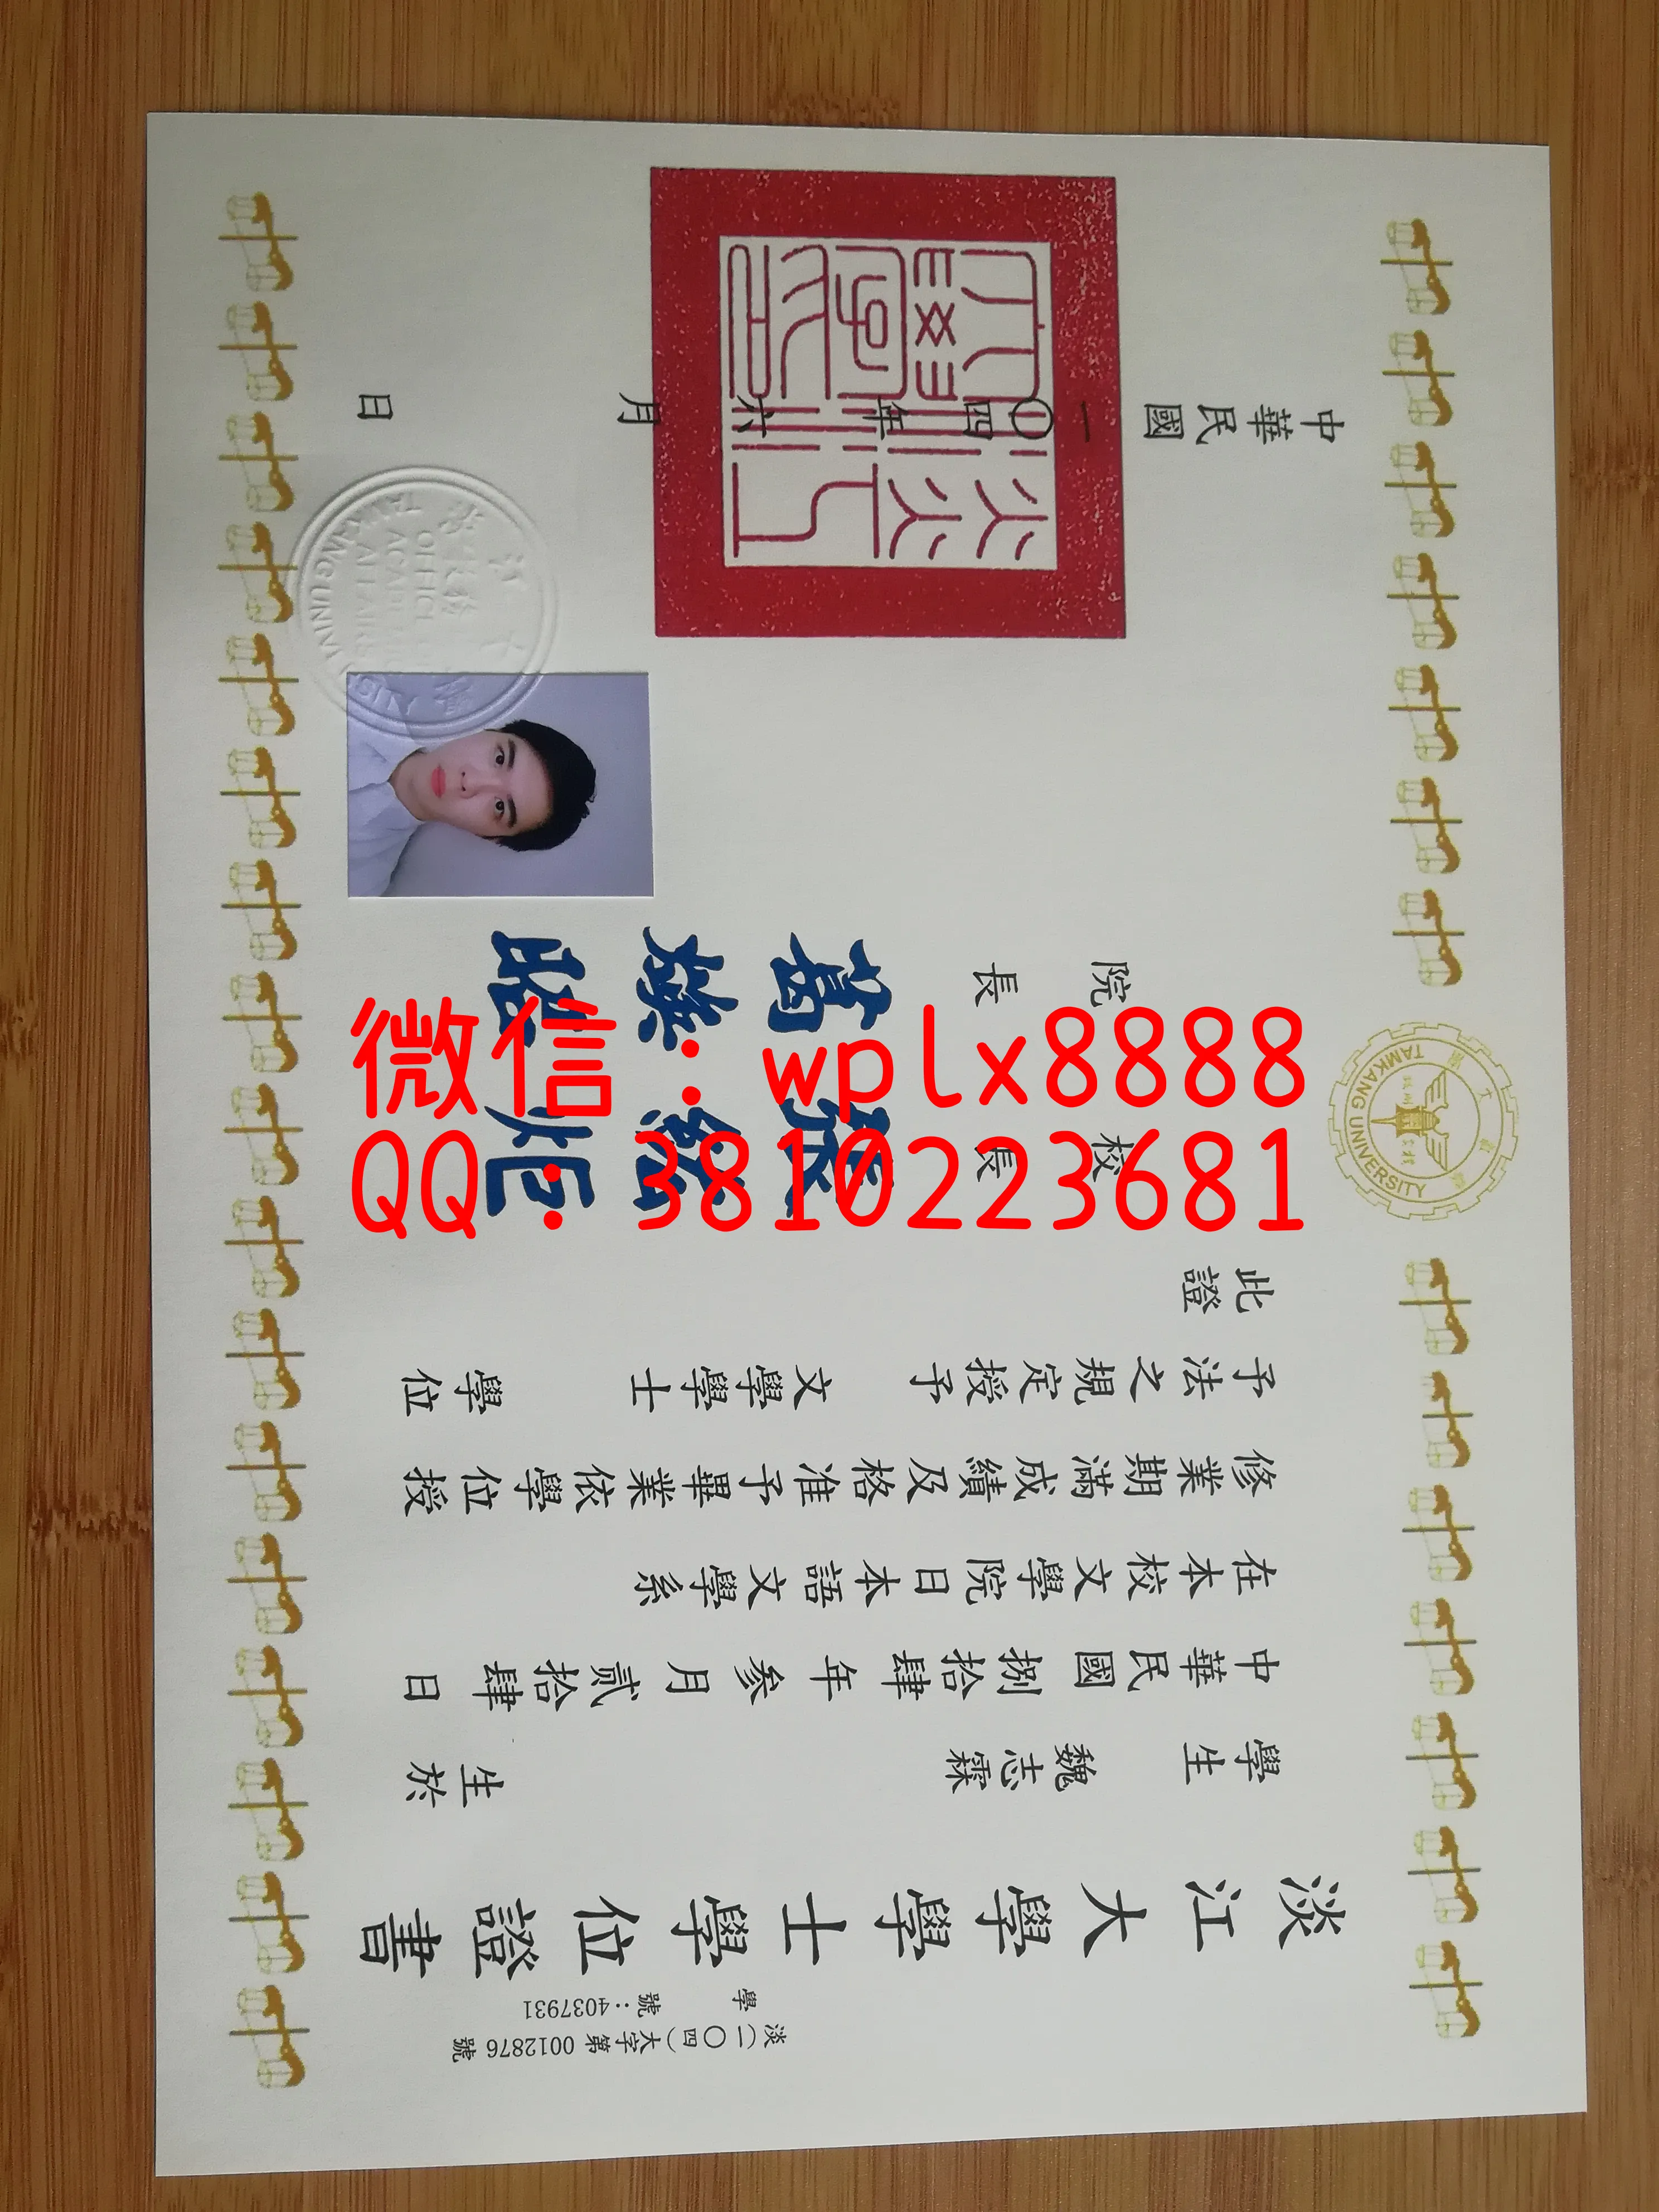 淡江大學學士學位證書
淡(一〇四)大字第 0012876 號
學號:4037931
學生 魏志霖 生於
中華民國捌拾肆年参月貳拾肆日
在本校文學院日本語文學系
修業期滿成績及格准予畢業依學位授
予法之規定授予 文學學士 學位
此證
校長 張
院長 萬
中華民國一〇四年六月 日
淡江大學
TAMKANG UNIVERSITY
TAMKANG UNIVERSITY
微信:wplx8888
QQ:3810223681